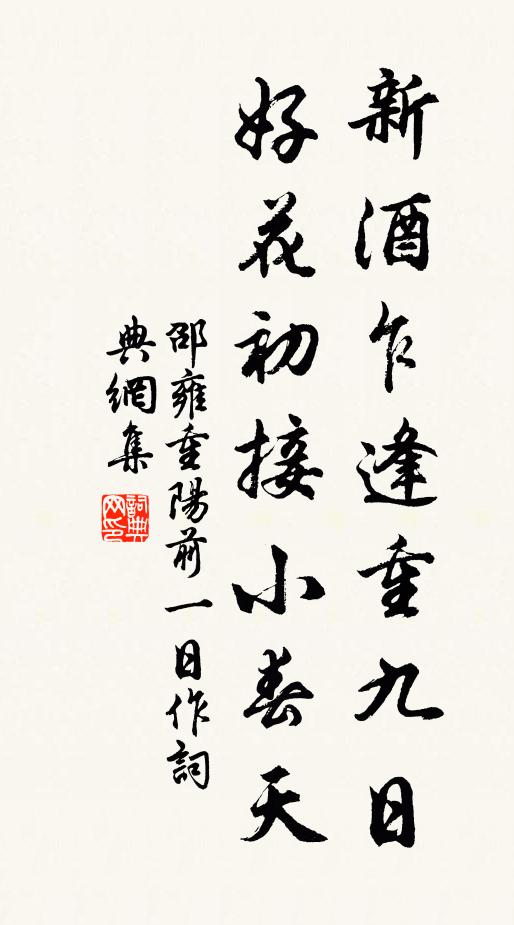 新酒乍逢重九日
好花初接小春天
邵雍重陽前一日作詞
典網集
詞典網印